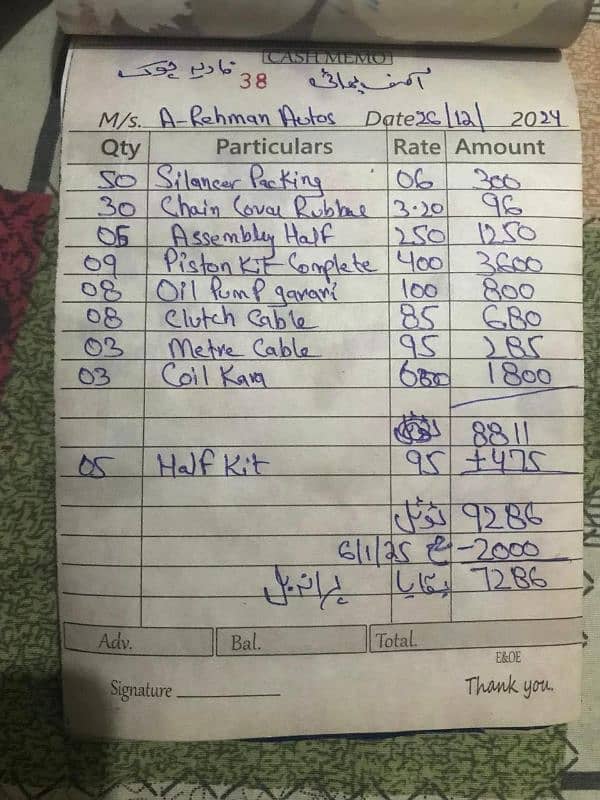 CASH MEMO
قادر چوک 38 آصف بھائی
M/s. A-Rehman Autos Date 26/12/ 2024
Qty Particulars Rate Amount
50 Silancer Packing 06 300
30 Chain Covar Rubbar 3.20 96
05 Assembly Half 250 1250
09 Piston Kit Complete 400 3600
08 Oil Pump garari 100 800
08 Clutch Cable 85 680
03 Metre Cable 95 285
03 Coil Kara 600 1800
8811
05 Half Kit 95 +475
ٹوٹل 9286
6/1/25 -2000
بقایا 7286
Adv. Bal. Total.
E&OE
Signature Thank you.